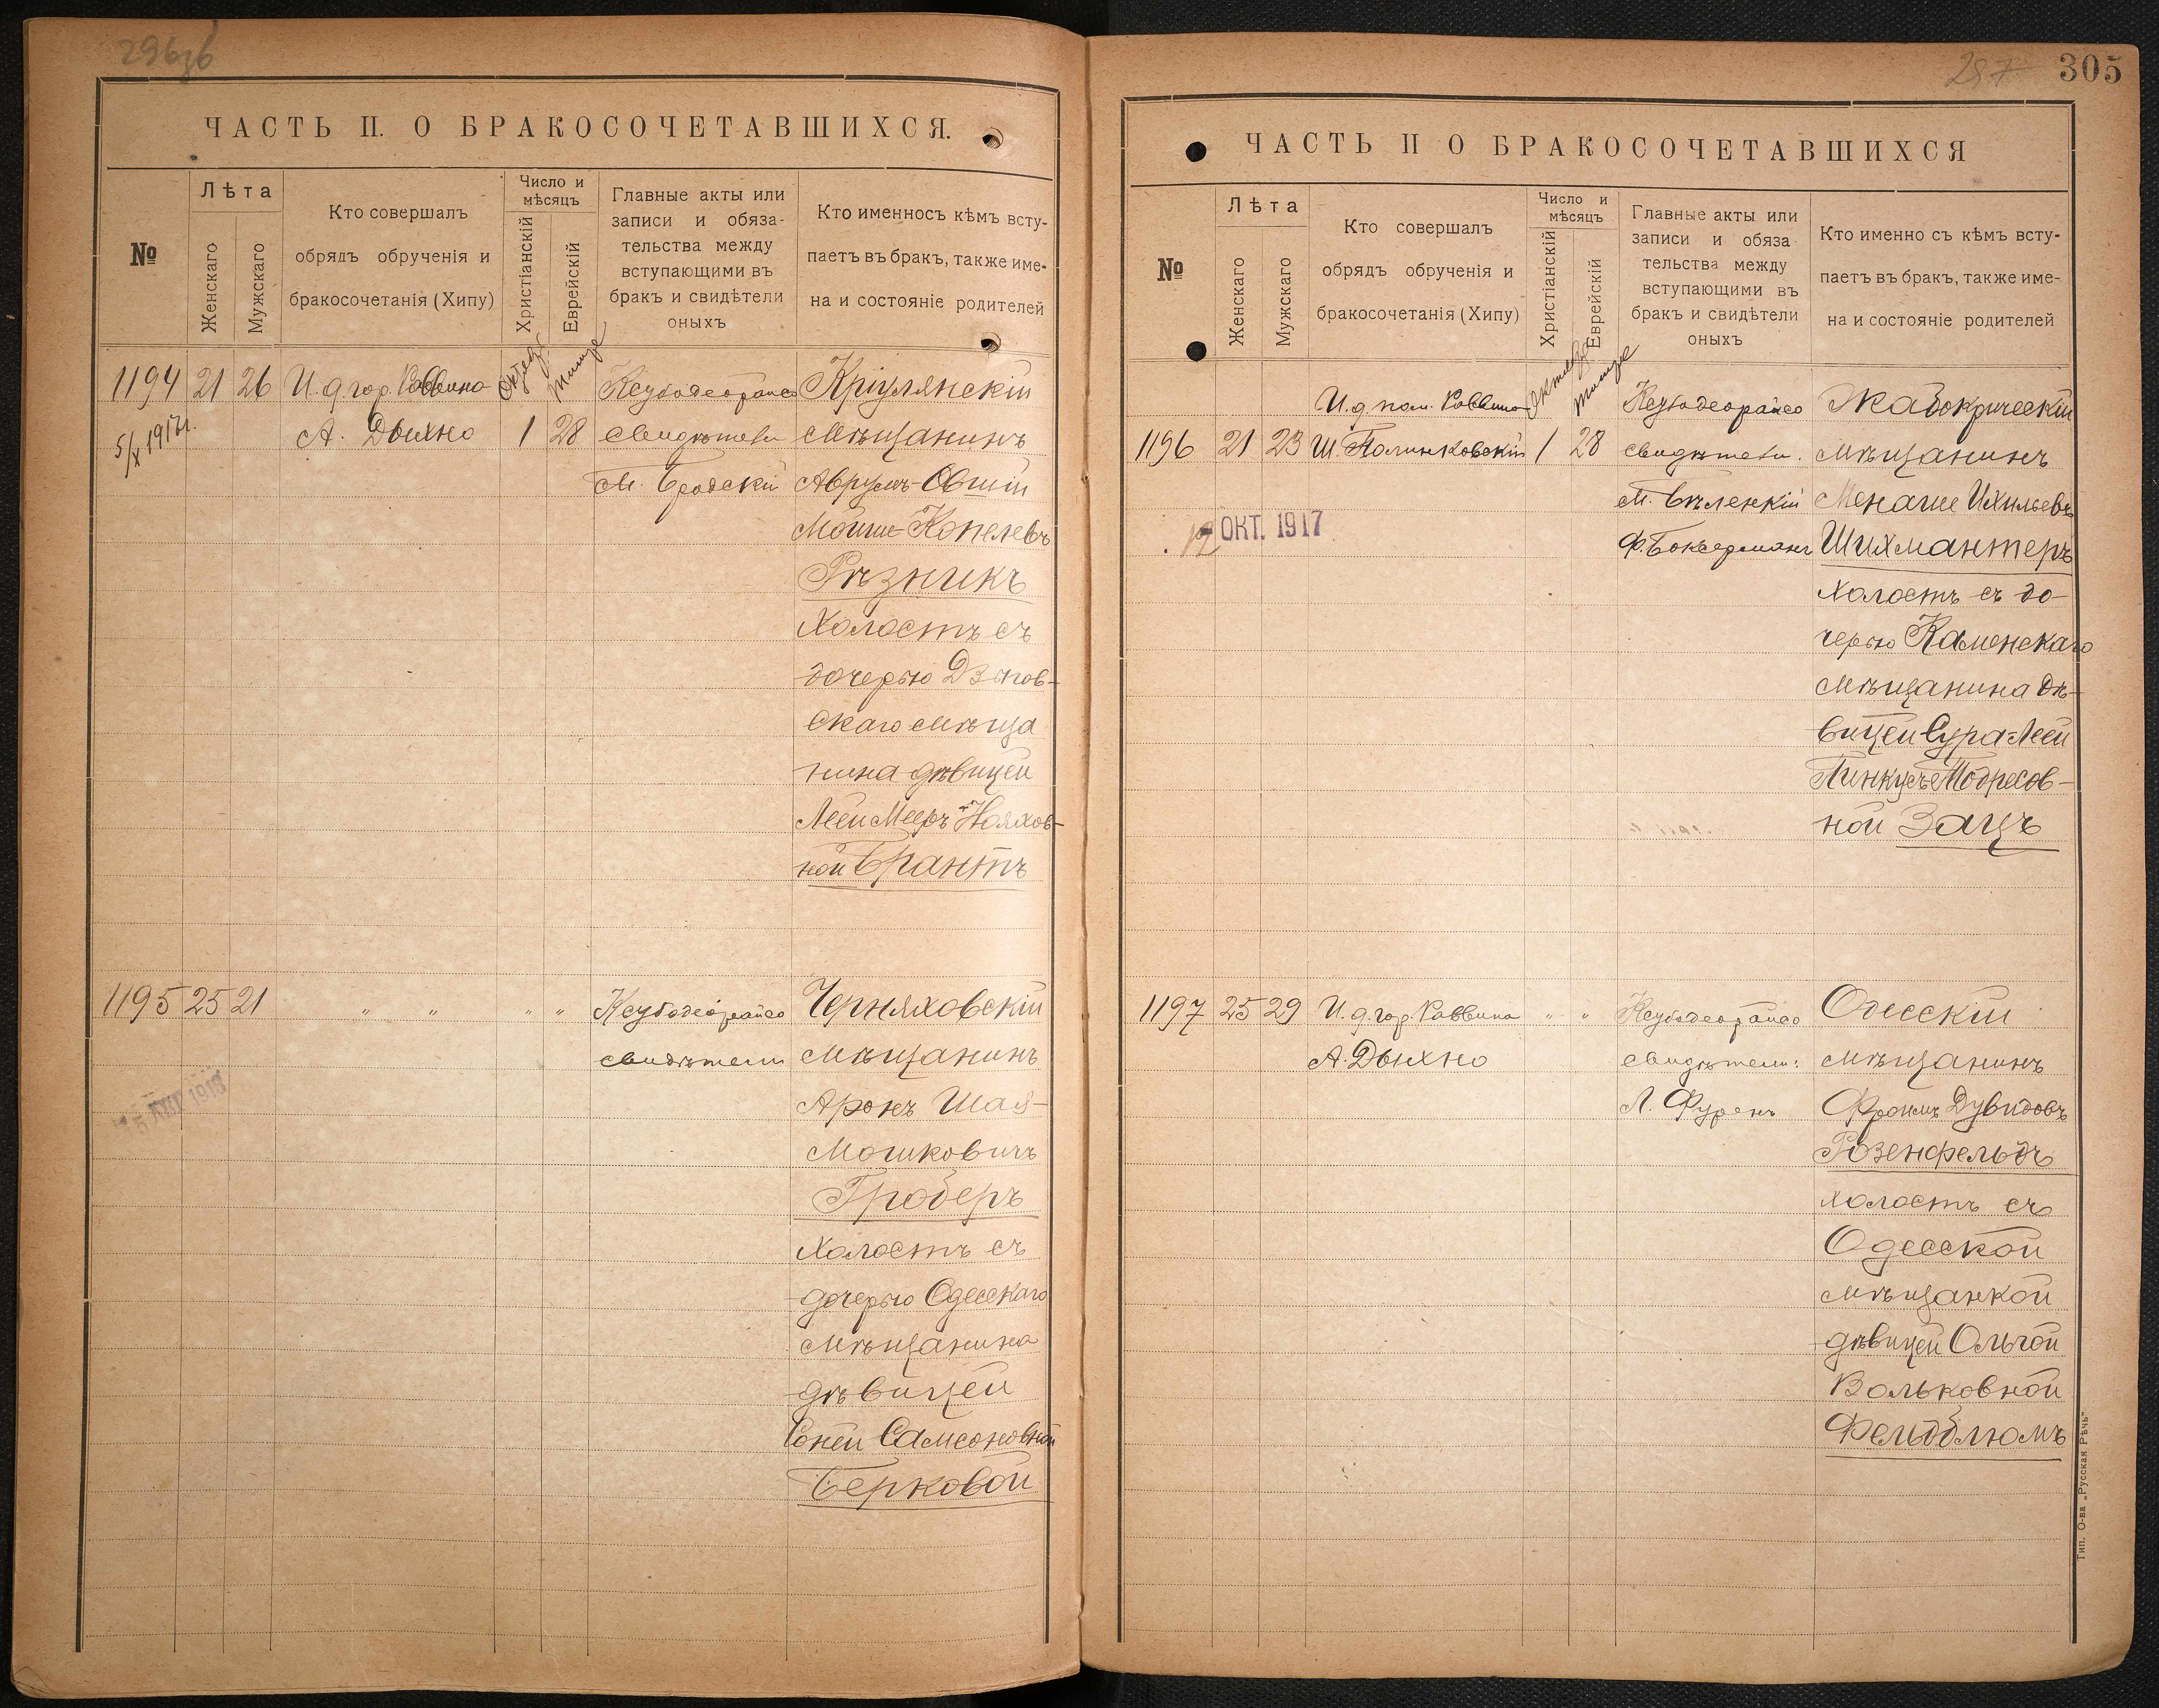 ЧАСТЬ II. О БРАКОСОЧЕТАВШИХСЯ.
№
Лѣта
Женскаго
Мужскаго
Кто совершалъ
обрядъ обрученія и
бракосочетанія (Хипу)
Число и
мѣсяцъ
Христіанскій
Еврейскій
Главные акты или
записи и обяза-
тельства между
вступающими въ
бракъ и свидѣтели
оныхъ
Кто именносъ кѣмъ всту-
паетъ въ бракъ, также име-
на и состояніе родителей
1194 21 26 И. д. гор. Раввина
А. Дыхно
1 28
5/X 1917г.
Тишре
Ксубадеорайсо
свидѣтели
М. Бродскій
Кріулянскій
мѣщанинъ
Аврумъ-Овшій
Мойше-Копелевъ
Рѣзникъ
холостъ съ
дочерью Дзыгов-
скаго мѣща
нина дѣвицей
Леей Мееръ-Нояхов-
ной Брантъ
1195 25 21 " " " "
Ксубадеорайсо
свидѣтели
Черняховскій
мѣщанинъ
Аронъ Шая-
Мошковичъ
Гроберъ
холостъ съ
дочерью Одесскаго
мѣщанина
дѣвицей
Соней Самсоновной
Берковой
305
ЧАСТЬ II О БРАКОСОЧЕТАВШИХСЯ
№
Лѣта
Женскаго
Мужскаго
Кто совершалъ
обрядъ обрученія и
бракосочетанія (Хипу)
Число и
мѣсяцъ
Христіанскій
Еврейскій
Главные акты или
записи и обяза
тельства между
вступающими въ
бракъ и свидѣтели
оныхъ
Кто именно съ кѣмъ всту-
паетъ въ бракъ, также име-
на и состояніе родителей
И. д. пом. Раввина
1196 21 23 Ш. Полинковскій 1 28
Тишре
12 ОКТ. 1917
Ксубадеорайсо
свидѣтели.
М. Бѣленкій
Ф. Бокserманъ
Жабокрическій
мѣщанинъ
Менаше Ихильевъ
Шихмантеръ
холостъ съ до-
черью Каменскаго
мѣщанина дѣ-
вицей Сура-Леей
Пинкусъ-
ной Зацъ
1197 25 29 И. д. гор. Раввина " "
А. Дыхно
Ксубадеорайсо
свидѣтели:
Л. Фуренъ
Одесскій
мѣщанинъ
Фроимъ Дувидовъ
Розенфельдъ
холостъ съ
Одесской
мѣщанкой
дѣвицей Ольгой
Вольковной
Фельдблюмъ
Тип. О-ва „Русская Рѣчь"